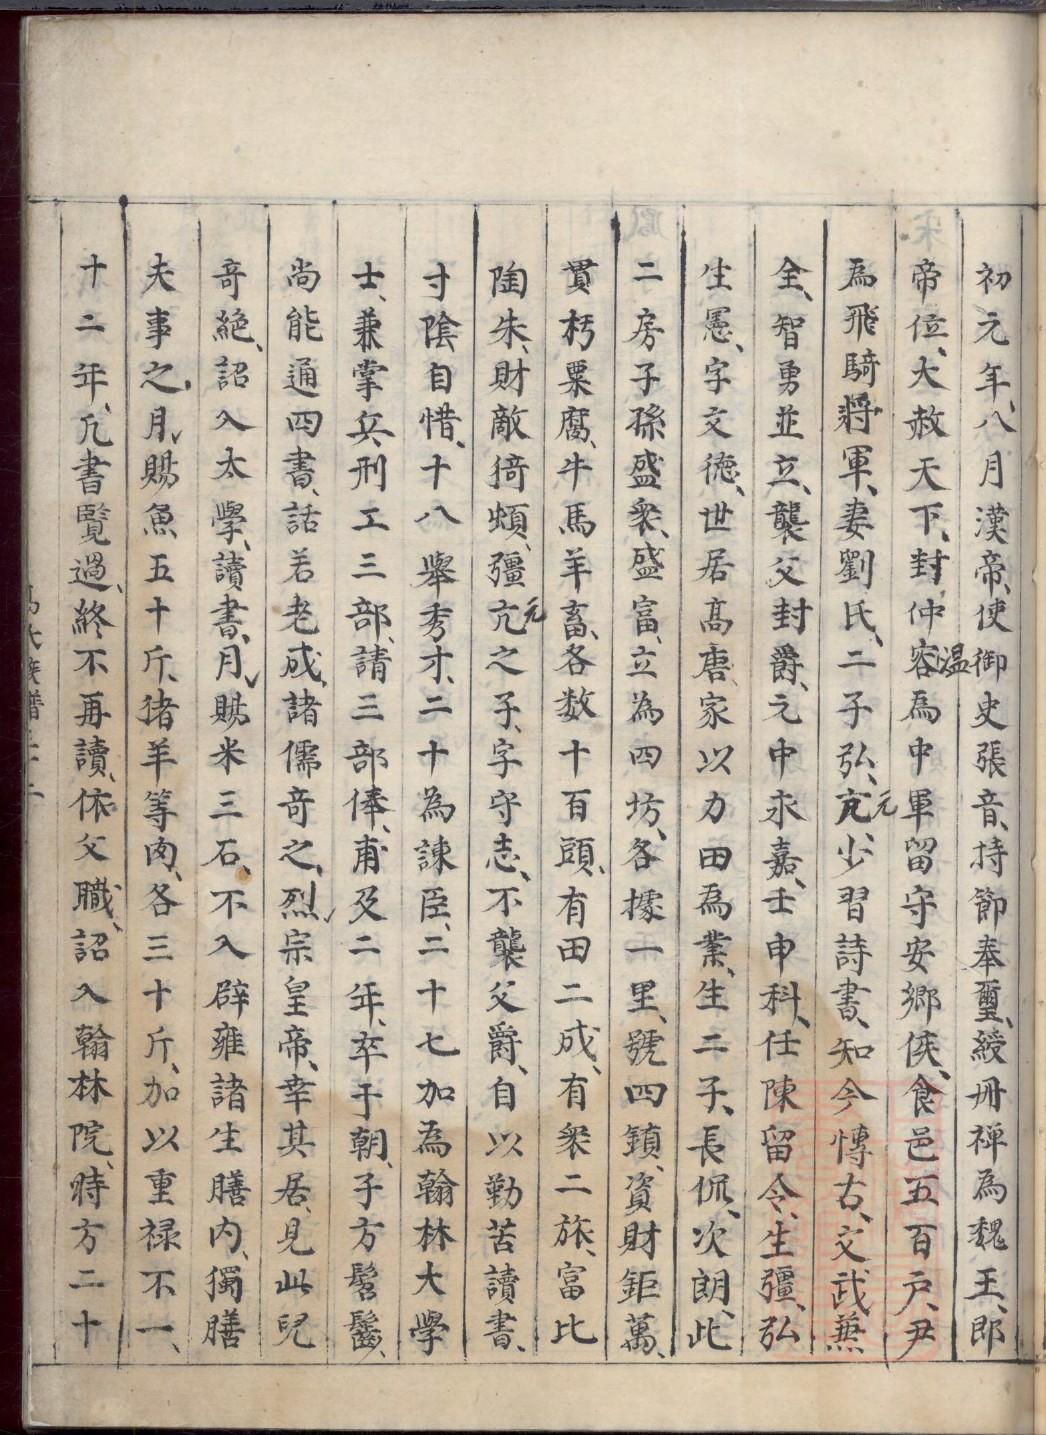 初元年、八月漢帝、使御史張音、持節奉璽、綬冊禪為魏王、郎
帝位、大赦天下、封仲容温為中軍留守安鄉侯、食邑五百戶、尹
為飛騎將軍、妻劉氏、二子弘、亢元、少習詩書、知今慱古、文武蕪
全、智勇並立、襲父封爵、元中永嘉、壬申科、任陳留令、生彊、弘
生憲、字文德、世居高唐家以力田為業、生二子、長侃、次朗、此
二房子孫盛衆、盛富、立為四坊、各據一里、號四鎮、資財鉅萬、
貫朽粟腐、牛馬羊畜、各数十百頭、有田二成、有衆二旅、富比
陶朱、財敵猗頓、彊亢元之子、字守志、不襲父爵、自以勤苦讀書、
寸陰自惜、十八舉秀才、二十為諫臣、二十七加為翰林大學
士、兼掌兵刑工三部、請三部俸、甫及二年、卒于朝、子方髫齠、
尚能通四書、話若老成、諸儒奇之、烈宗皇帝、幸其居、見此兒
奇絕、詔入太學、讀書、月賜米三石、不入辟雍諸生膳內、獨膳
夫事之、月賜魚五十斤、猪羊等肉、各三十斤、加以重禄不一、
十二年、凢書覽過、終不再讀、依父職、詔入翰林院、時方二十